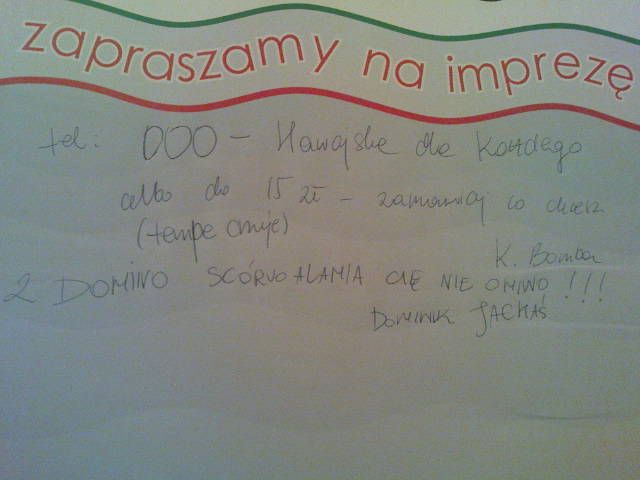 zapraszamy na imprezę
tel: 000 - Hawajskie dla każdego
albo do 15 zł - zamawiaj co chcesz
(tempe chuje)
K. Bomba
2 DOMINO SCÓRVOALAMIA CIĘ NIE OMINO !!!
DOMINIK JACHAŚ